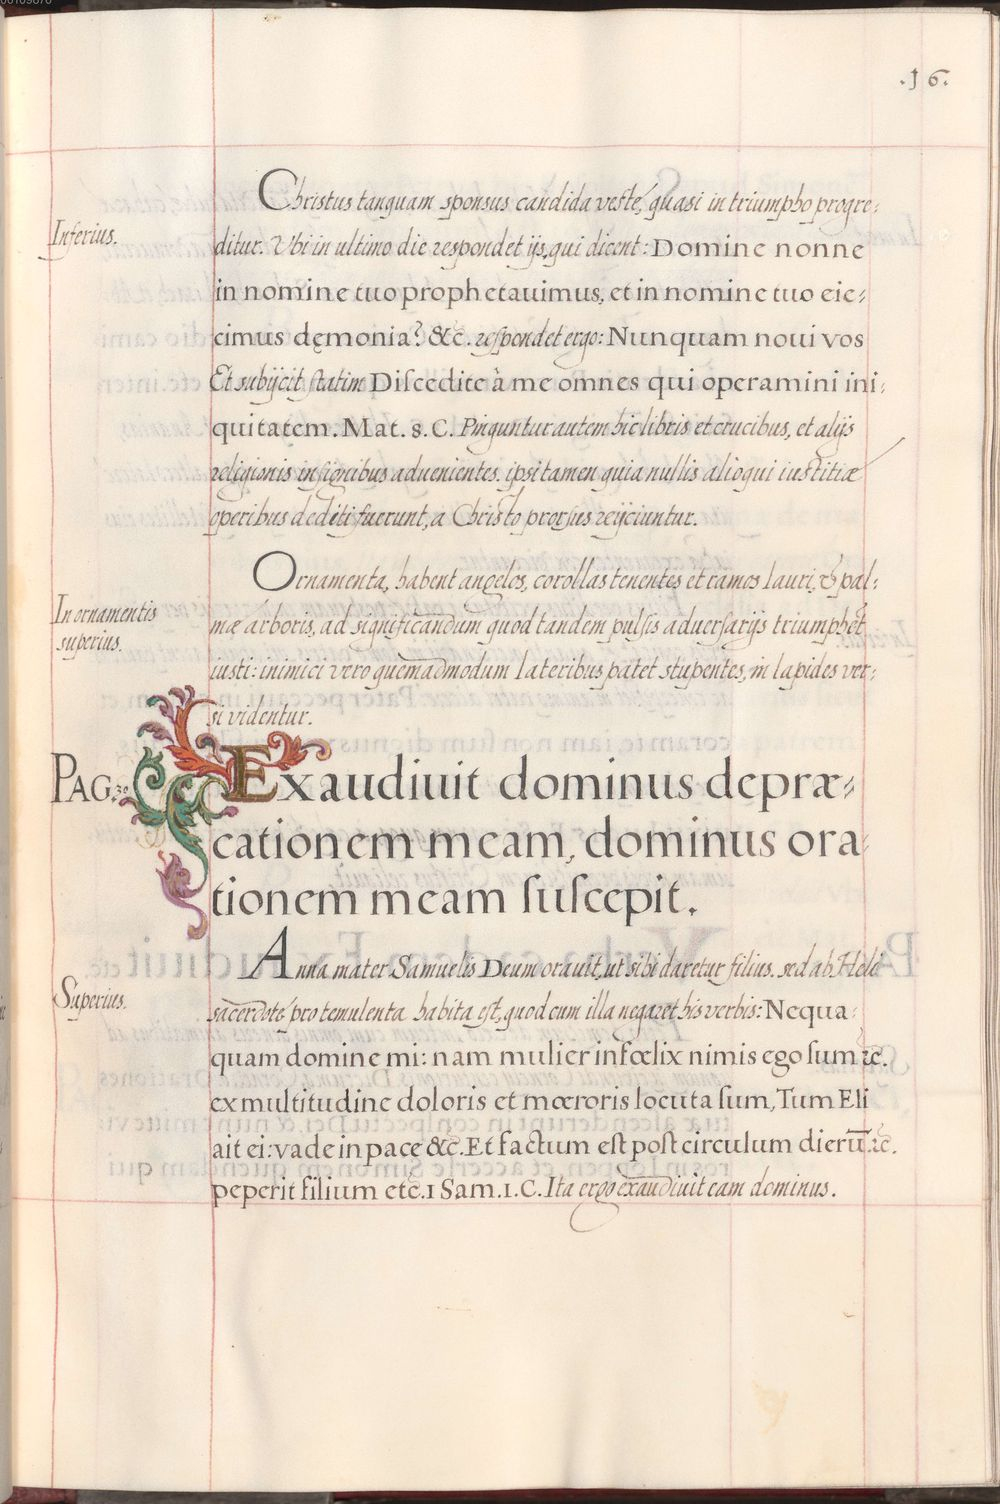 .16.
Christus tanquam sponsus candida veste, quasi in triumpho progre-
Inferius.
ditur. Vbi in ultimo die respondet ijs, qui dicent: Domine nonne
in nomine tuo prophetauimus, et in nomine tuo eie-
cimus dęmonia? &c. respondet ergo: Nunquam noui vos
Et subijcit statim Discedite à me omnes qui operamini ini-
quitatem. Mat. 8. C. Pinguntur autem hic libris et crucibus, et alijs
religionis insignibus aduenientes. ipsi tamen quia nullis alioqui iustitiæ
operibus dediti fuerunt, a Christo prorsus reijciuntur.
Ornamenta, habent angelos, corollas tenentes et ramos lauri, & pal-
In ornamentis
superius.
mæ arboris, ad significandum quod tandem pulsis aduersarijs triumphet
iusti: inimici vero quemadmodum lateribus patet stupentes, in lapides ver-
si videntur.
PAG. 30
Exaudiuit dominus depræ-
cationem meam, dominus ora-
tionem meam suscepit.
Anna mater Samuelis Deum orauit, ut sibi daretur filius. sed ab Hele
Superius.
sacerdote pro temulenta habita est, quod cum illa negaret his verbis: Nequa-
quam domine mi: nam mulier infœlix nimis ego sum ꝛc.
ex multitudine doloris et mœroris locuta sum, Tum Eli
ait ei: vade in pace &c. Et factum est post circulum dierū ꝛc.
peperit filium etc. 1 Sam. 1. C. Ita ergo exaudiuit eam dominus.